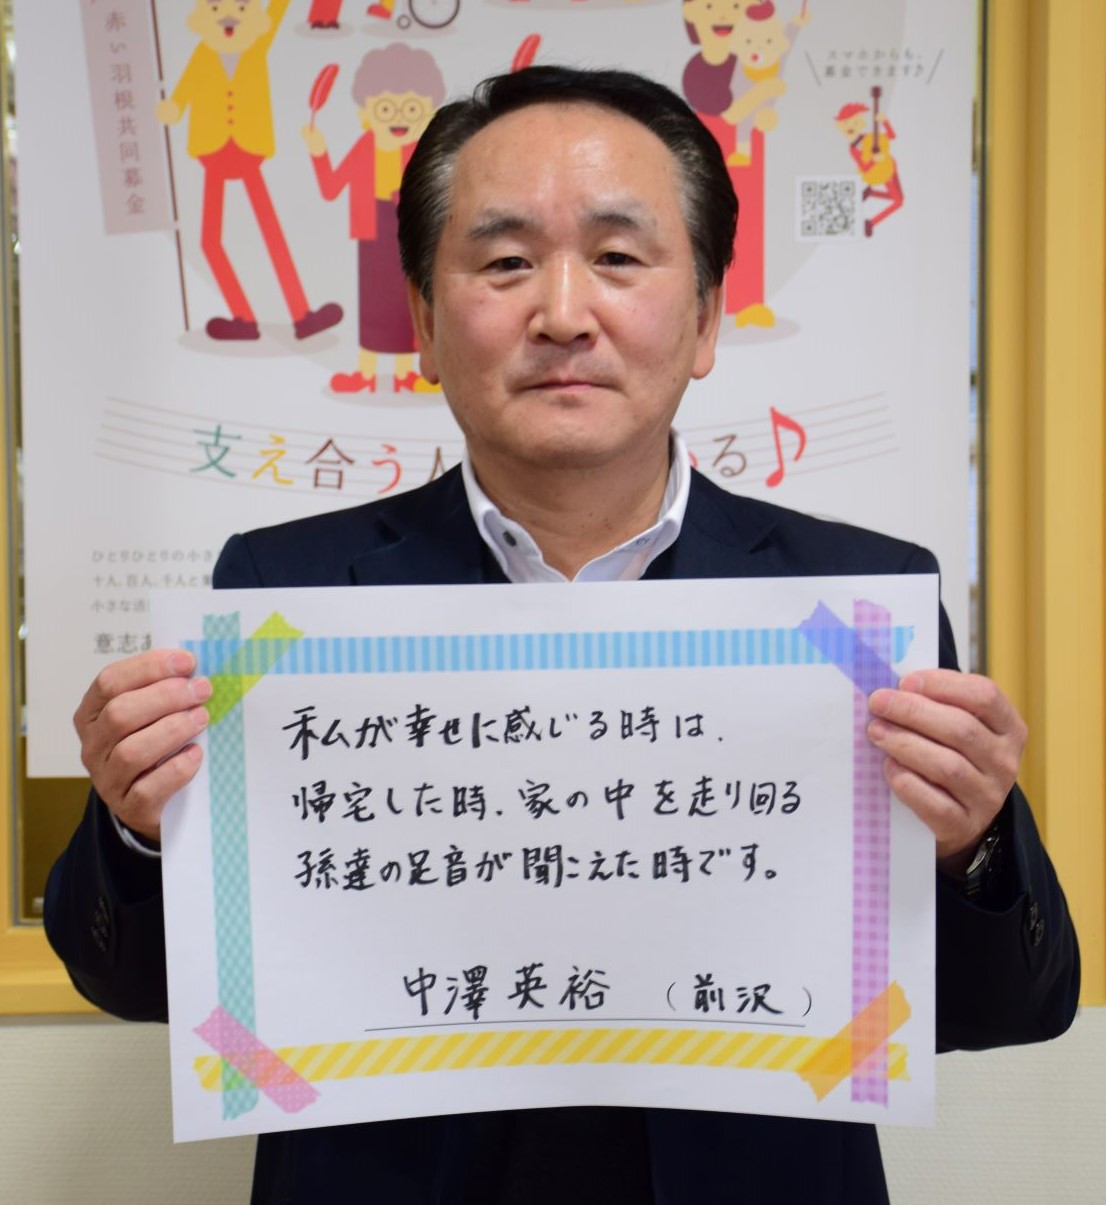 赤い羽根共同募金
スマホからも、
募金できます♪
支え合う
る♪
ひとりひとりの小さ
十人、百人、千人と集
小さな
意志あ
私が幸せに感じる時は、
帰宅した時、家の中を走り回る
孫達の足音が聞こえた時です。
中澤 英裕 （前沢）